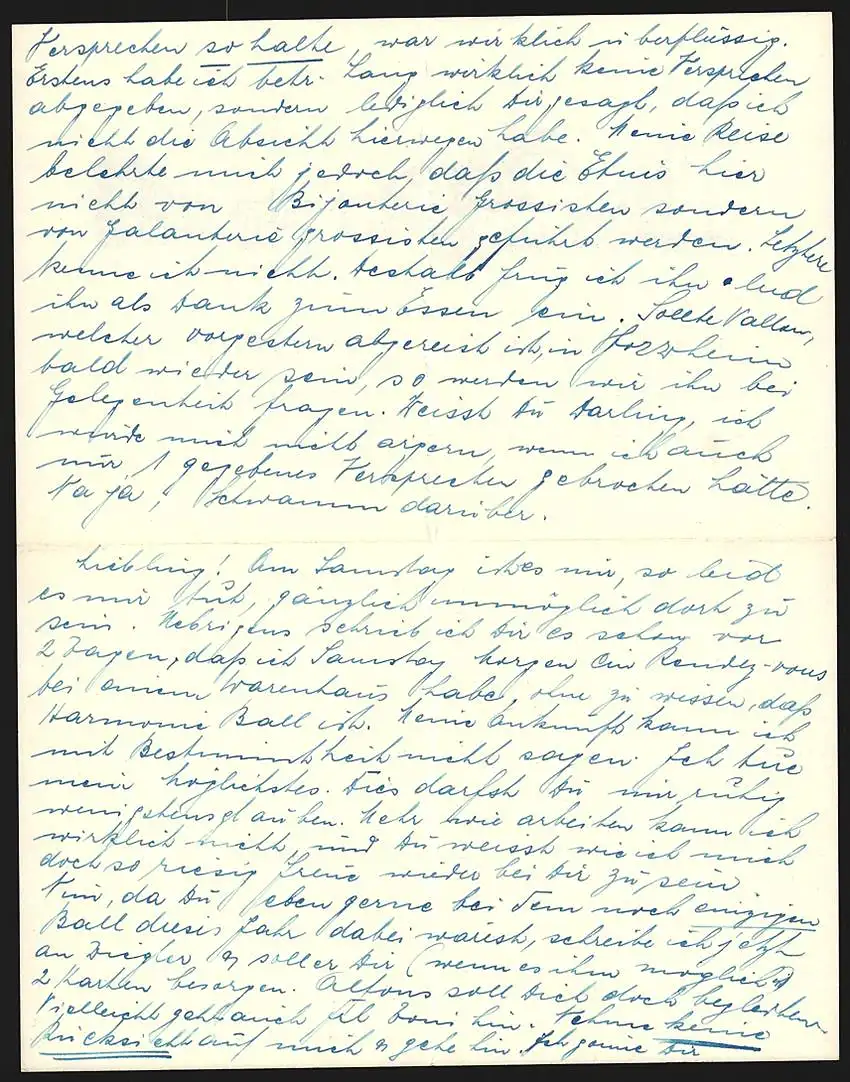 Versprechen so halte, war wirklich überflüssig.
Erstens habe ich betr. Lang wirklich keine Versprechen
abgegeben, sondern lediglich Dir gesagt, daß ich
nicht die Absicht hierwegen habe. Meine Reise
belehrte mich jedoch, daß die Etuis hier
nicht von Bijouterie Grossisten sondern
von Galanterie grossisten geführt werden. Letztere
kenne ich nicht. Deshalb frug ich ihn & lud
ihn als Dank zum Essen ein. Sollte
welcher vorgestern abgereist ist, in Pforzheim
bald wieder sein, so werden wir ihn bei
Gelegenheit fragen. Weisst Du Darling, ich
würde mich nicht ärgern, wenn ich auch
nur 1 gegebenes Versprechen gebrochen hätte.
Na ja, Schwamm darüber.
Liebling! Am Samstag ist es mir, so leid
es mir tut, gänzlich unmöglich dort zu
sein. Uebrigens schrieb ich Dir es schon vor
2 Tagen, daß ich Samstag Morgen ein Rendez-vous
bei einem Warenhaus habe, ohne zu wissen, daß
Harmonie Ball ist. Meine Ankunft kann ich
mit Bestimmtheit nicht sagen. Ich tue
mein Möglichstes. Dies darfst Du mir ruhig
wenigstens glauben. Mehr wie arbeiten kann ich
wirklich nicht, und Du weisst wie ich mich
doch so riesig freue wieder bei Dir zu sein
Nun, da Du eben gerne bei dem noch einzigen
Ball dieses Jahr dabei wärest, schreibe ich jetzt
an Ziegler & soll er Dir (wenn es ihm möglich)
2 Karten besorgen. Alfons soll Dich doch begleiten.
Vielleicht geht auch Frl Toni hin. Nehme keine
Rücksicht auf mich & gehe hin. Ich gönne Dir